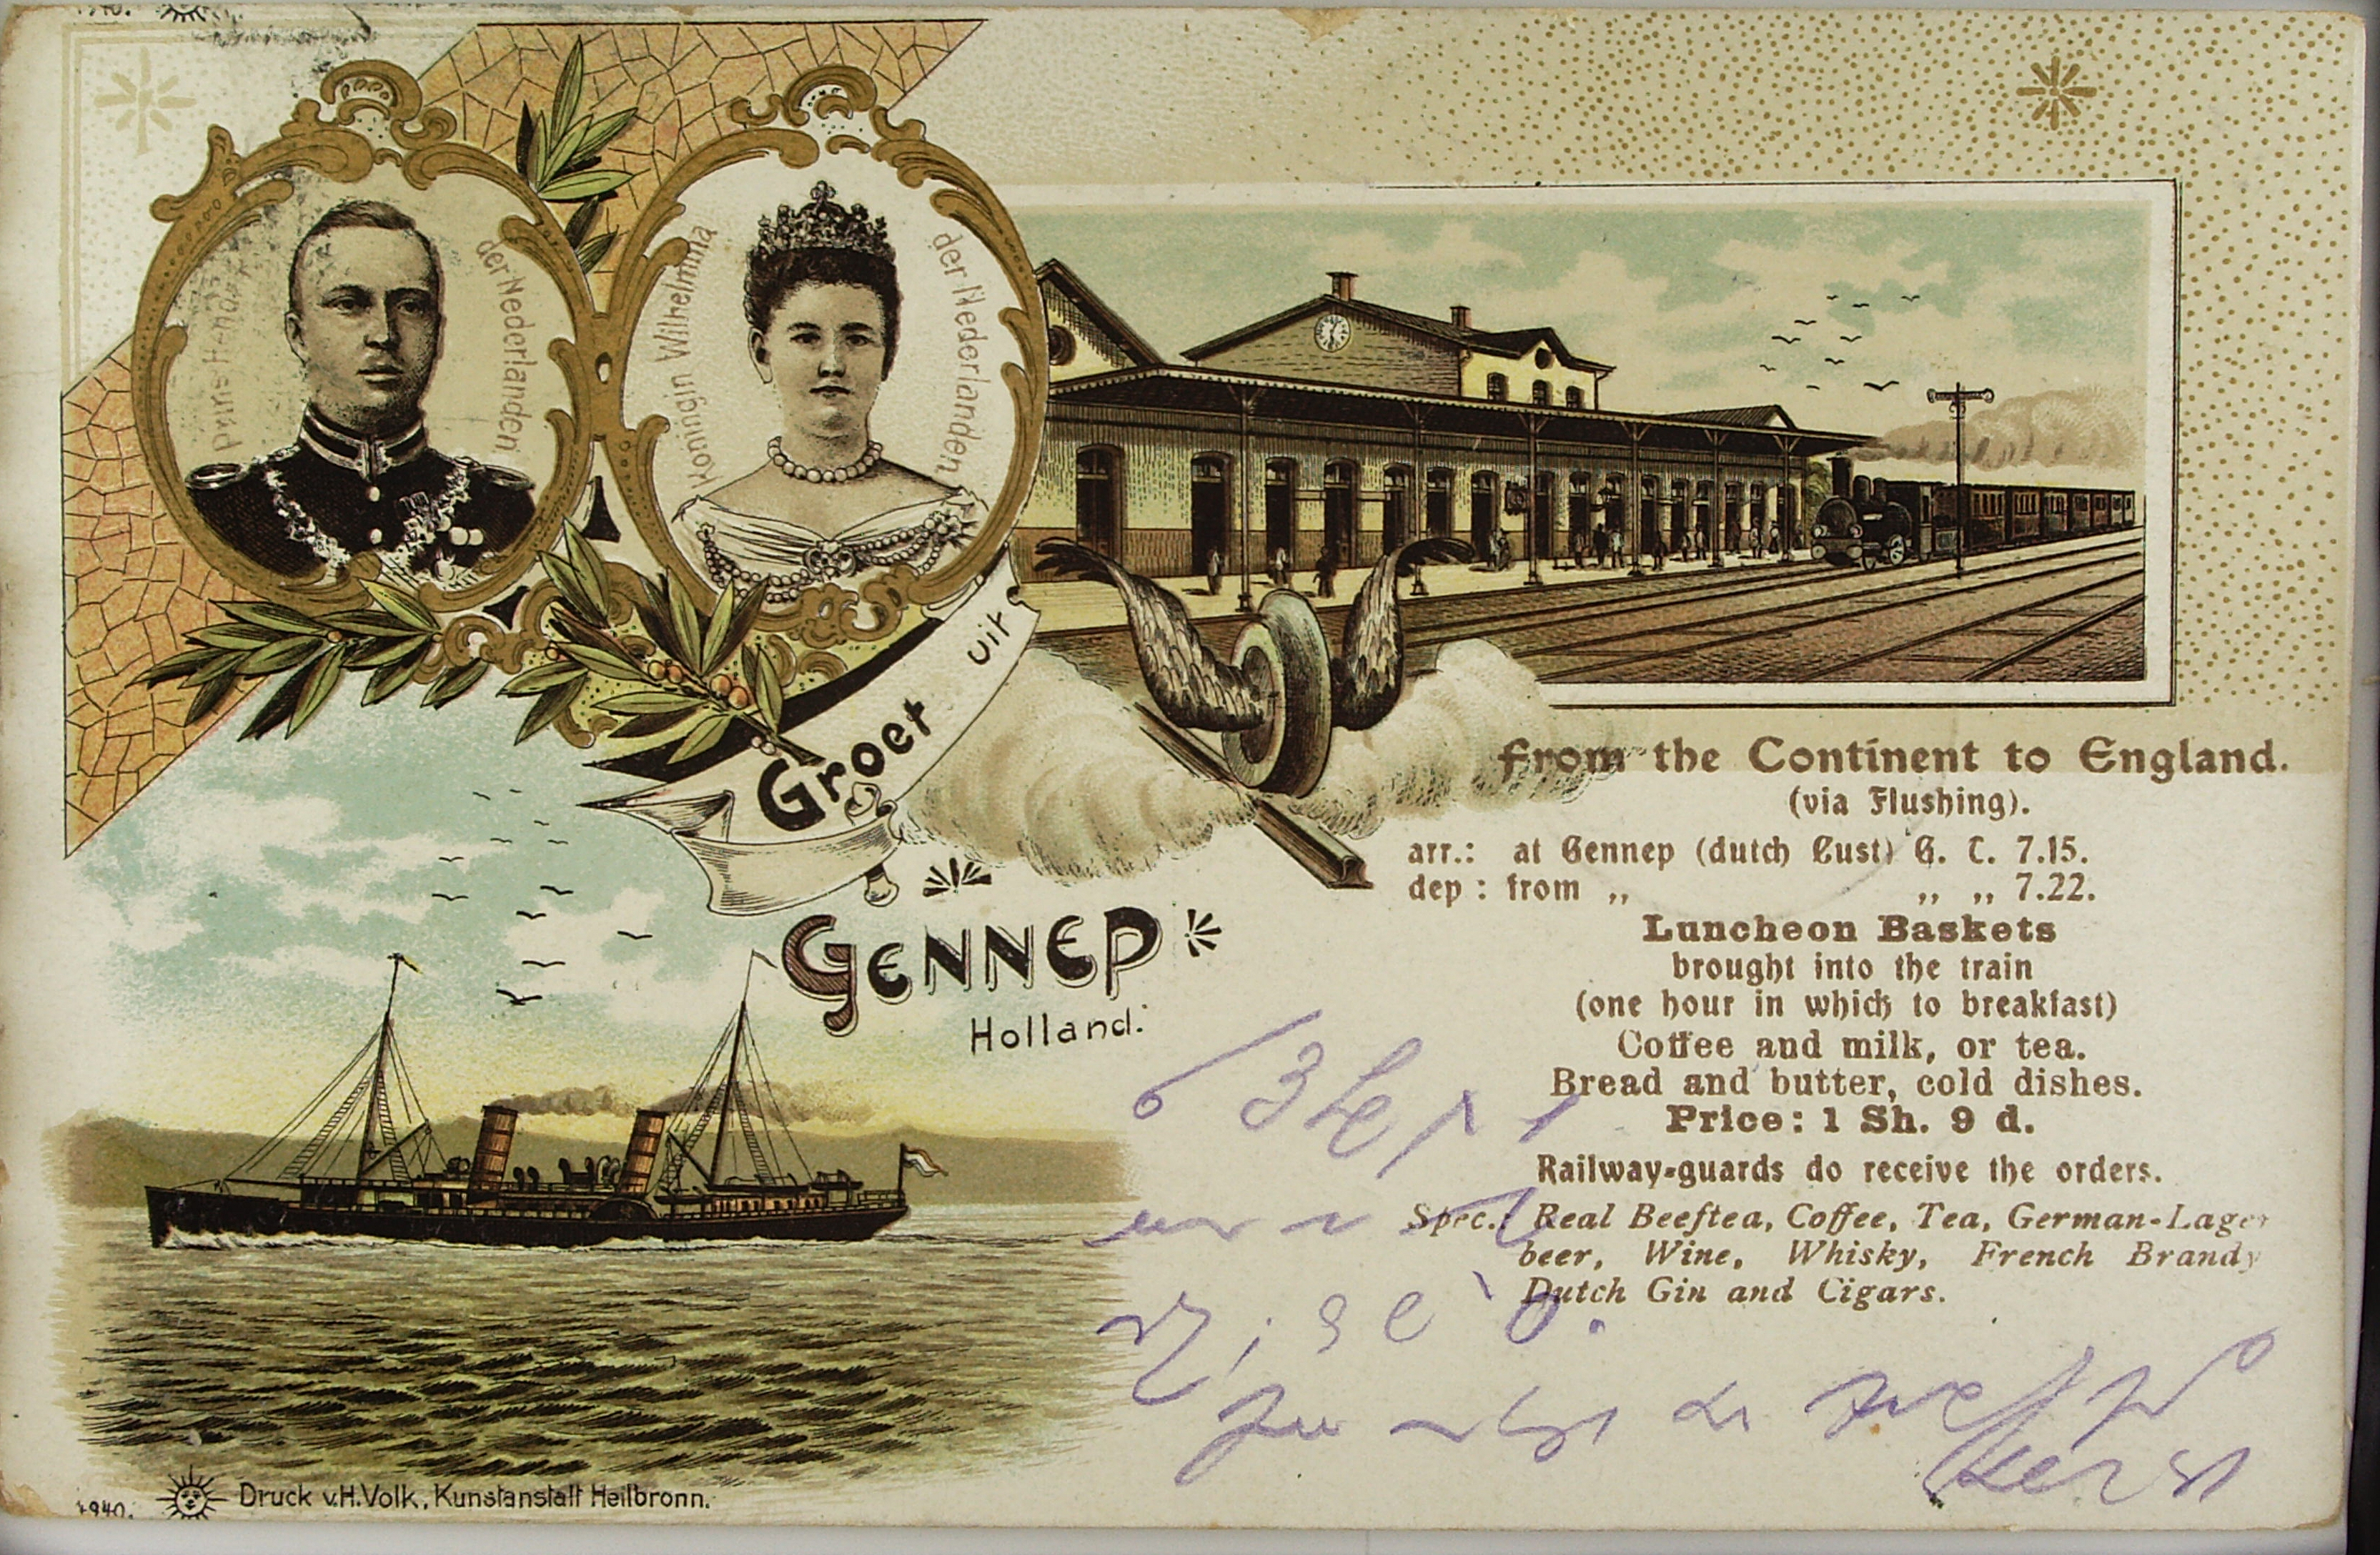 Prins Hendrik
der Nederlanden
Königin Wilhelmina
der Nederlanden
Groet uit
GENNEP
Holland.
from the Continent to England.
(via Flushing).
arr.: at Gennep (dutch Cust) G. T. 7.15.
dep : from „ „ „ 7.22.
Luncheon Baskets
brought into the train
(one hour in which to breakfast)
Coffee and milk, or tea.
Bread and butter, cold dishes.
Price: 1 Sh. 9 d.
Railway-guards do receive the orders.
Spec.: Real Beeftea, Coffee, Tea, German-Lager
beer, Wine, Whisky, French Brandy
Dutch Gin and Cigars.
Druck v.H.Volk, Kunstanstalt Heilbronn.